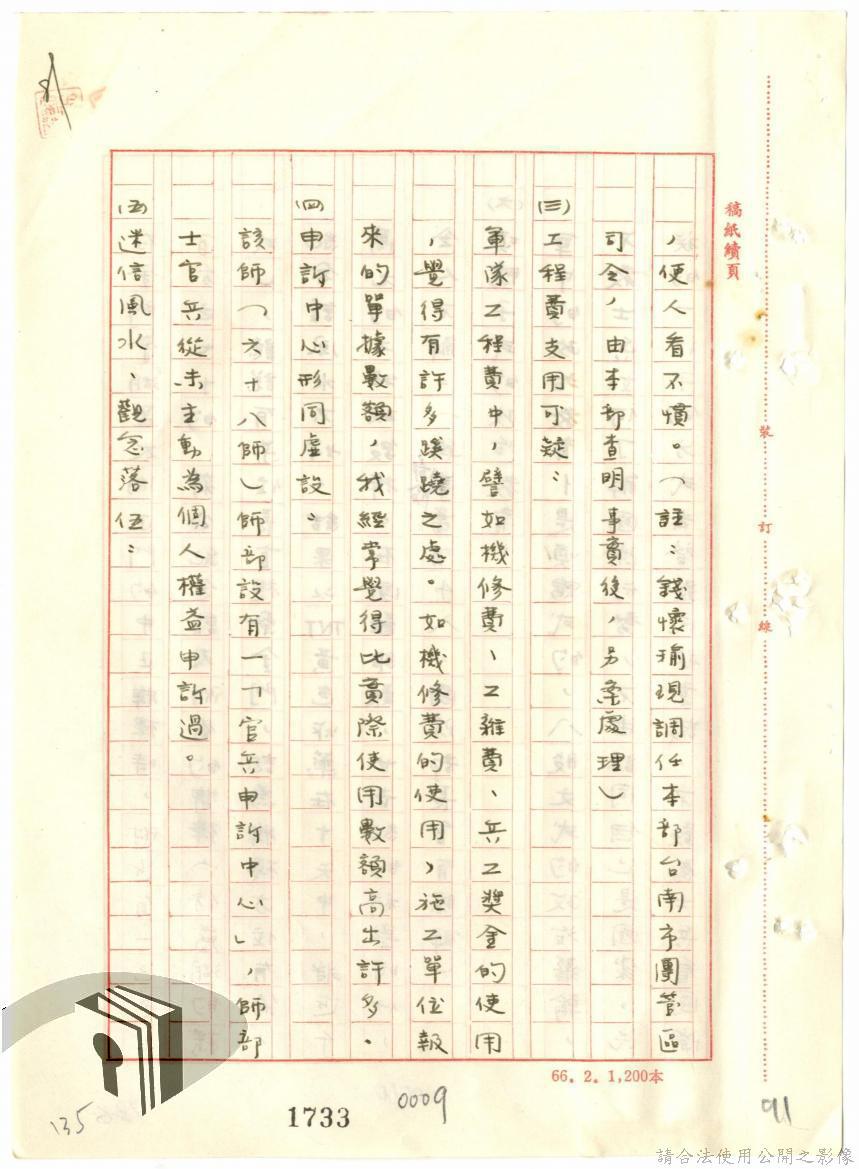 稿紙續頁
，使人看不慣。（註：錢懷瑜現調任本部台南市團管區
司令，由本部查明事實後，另案處理）
(三)工程費支用可疑：
軍隊工程費中，譬如機修費、工雜費、兵工獎金的使用
，覺得有許多蹊蹺之處。如機修費的使用，施工單位報
來的單據數額，我經常覺得比實際使用數額高出許多。
(四)申訴中心形同虛設：
該師（六十八師）師部設有一「官兵申訴中心」，師部
士官兵從未主動為個人權益申訴過。
(五)迷信風水、觀念落伍：
裝訂線
66.2.1,200本
135
1733
0009
91
請合法使用公開之影像